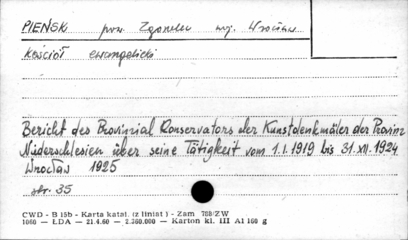 PIEŃSK pow. Zgorzelec woj. Wrocław
Kościół ewangelicki
Bericht des Provinzial Konservators der Kunstdenkmäler der Provinz
Niederschlesien über seine Tätigkeit vom 1.I.1919 bis 31.XII.1924
Wrocław 1925
str. 35
CWD - B 15b - Karta katal. (z liniat) - Zam 788/ZW
1060 - ŁDA - 21.4.60 - 2.360.000 - Karton kl. III A1 160 g